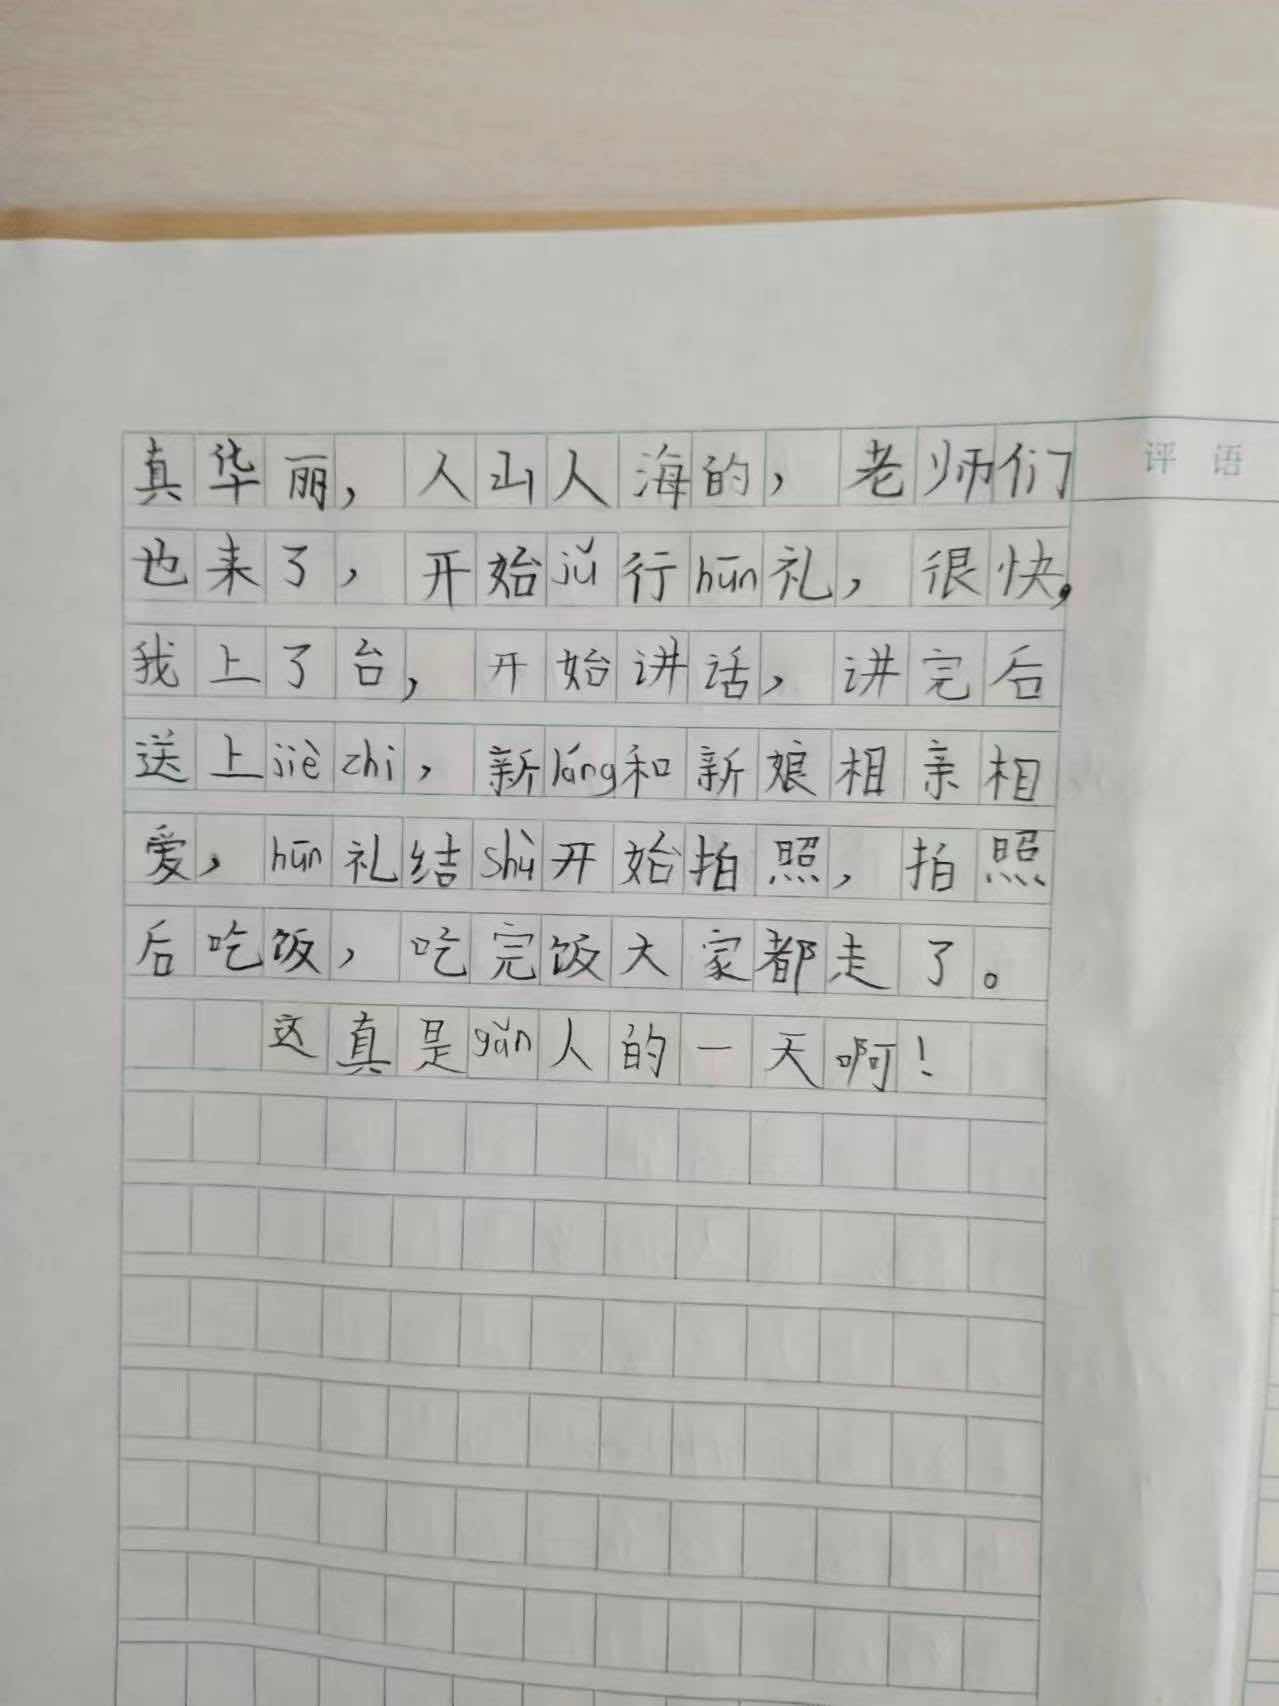 评 语
真华丽，人山人海的，老师们
也来了，开始jǔ行hūn礼，很快，
我上了台，开始讲话，讲完后
送上jièzhi，新láng和新娘相亲相
爱，hūn礼结shù开始拍照，拍照
后吃饭，吃完饭大家都走了。
这真是gǎn人的一天啊！